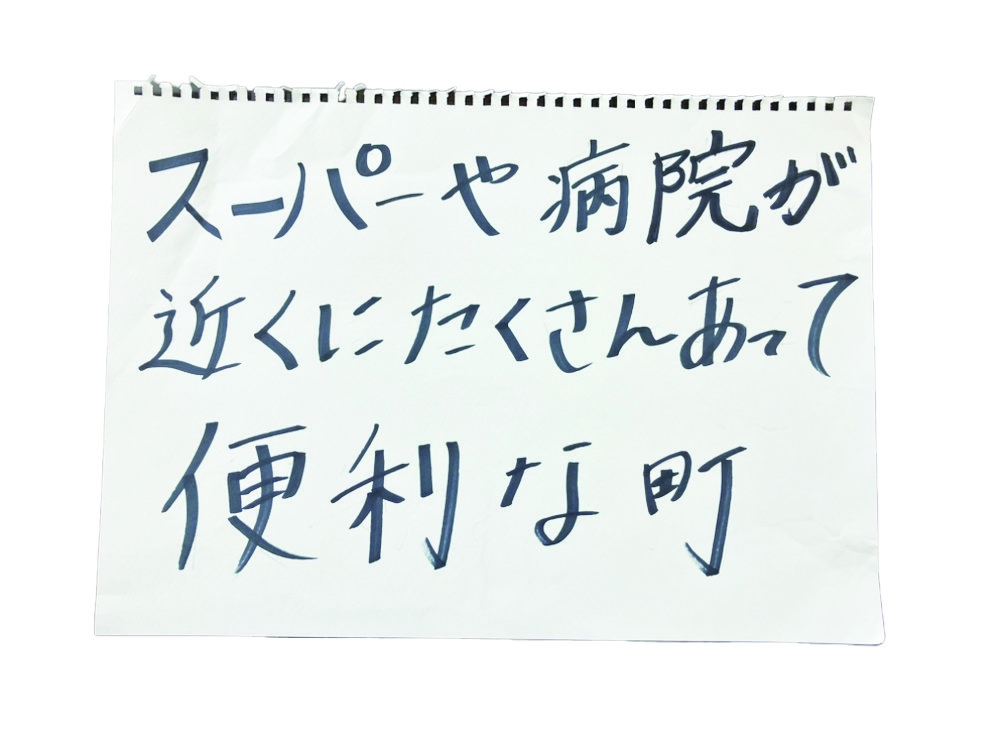 スーパーや病院が
近くにたくさんあって
便利な町